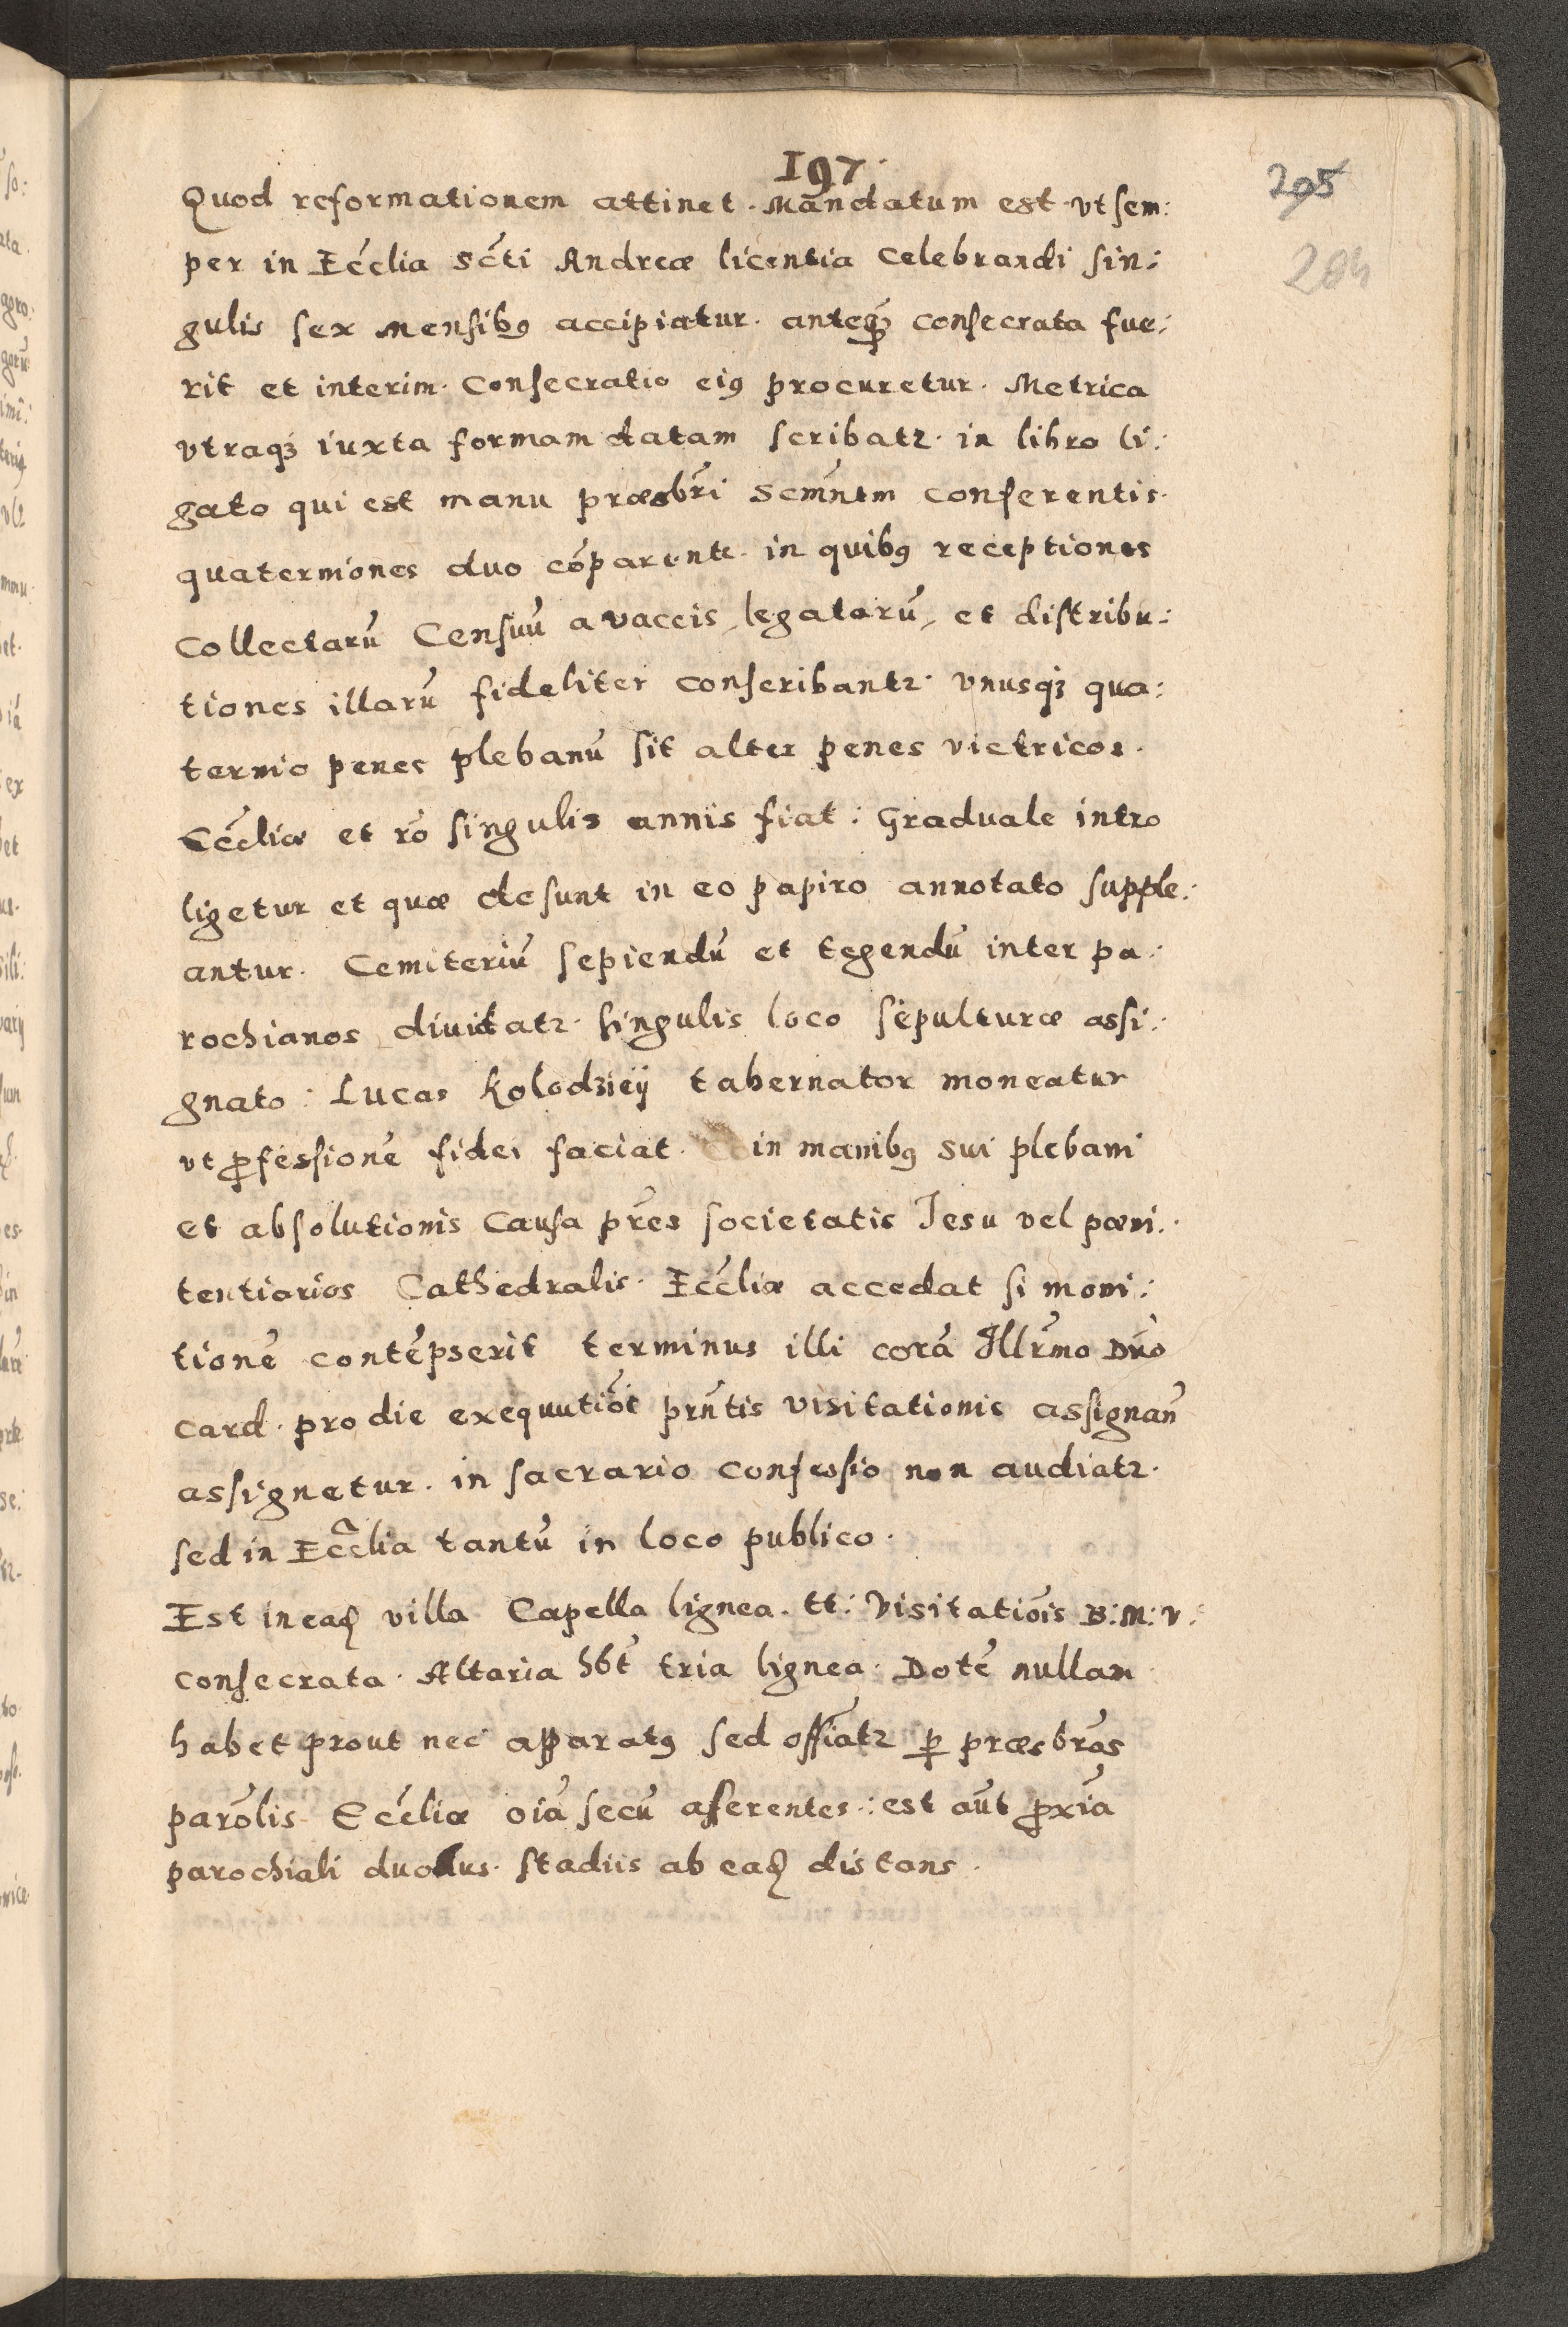 197.
205
204
Quod reformationem attinet. Mandatum est vt sem:
per in Eccƚia Scti Andreæ licentia Celebrandi sin:
gulis sex mensibꝰ accipiatur. anteqꝫ consecrata fue:
rit et interim Consecratio eiꝰ procuretur. Metrica
vtraqꝫ iuxta formam datam scribatr. in libro li:
gato qui est manu præsbri Semntm conferentis
quaterniones duo cōparentr. in quibꝰ receptiones
Collectarū Censuū a vaccis, legatorū, et distribu:
tiones illarū fideliter conscribantr. vnusqꝫ qua:
ternio penes plebanū sit alter penes victricos.
Eccliæ et rō singulis annis fiat: Graduale intro
ligetur et quæ desunt in eo papiro annotato supple:
antur. Cemiteriū sepiendū et tegendū inter pa:
rochianos diuidatr. singulis loco sepulturæ assi:
gnato: Lucas Kolodzieÿ tabernator moneatur
vt ꝓfessionē fidei faciat. in manibꝰ sui plebani
et absolutionis causa pres societatis Jesu vel pœni:
tentiarios Cathedralis. Eccliæ accedat si moni:
tionē contēpserit terminus illi corā Illrmo Dno
Card. pro die exequutiōis prntis visitationis assignan
assignetur. in sacrario confessio non audiatr.
sed in Ecclia tantū in loco publico.
Est in eaḍ villa Capella lignea. tt: Visitatiois B: M: V:
consecrata. Altaria hbt tria lignea. Dotē nullam
habet prout nec apparatꝰ sed offiatr ꝑ præsbros
parolis Eccliæ oia secū aferentes: est aūt ꝓxia
parochiali duobus. stadiis ab eaḍ distans.